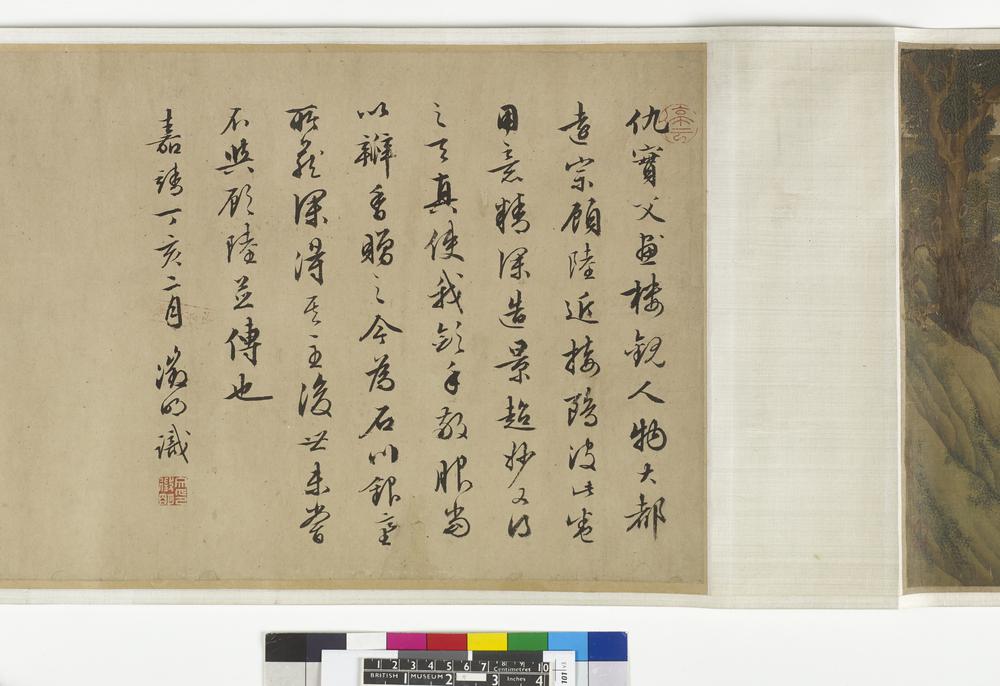 仇實父畫樓觀人物大都
遠宗顧陸近接波此卷
用意精深造景超妙又得
之天真使我斂手敬服當
以瓣香贈之今為石川銀臺
所藏深得其主後世未嘗
不與顧陸並傳也
嘉靖丁亥二月 徵明識
停雲
1 2 3 4 5 6 7 8 9 10
Centimetres
BRITISH 1 MUSEUM 2 3 Inches 4
101